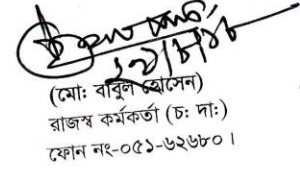 (মো: বাবুল হোসেন)
রাজস্ব কর্মকর্তা (চ: দা:)
ফোন নং-০৫১-৬২৬৮০।